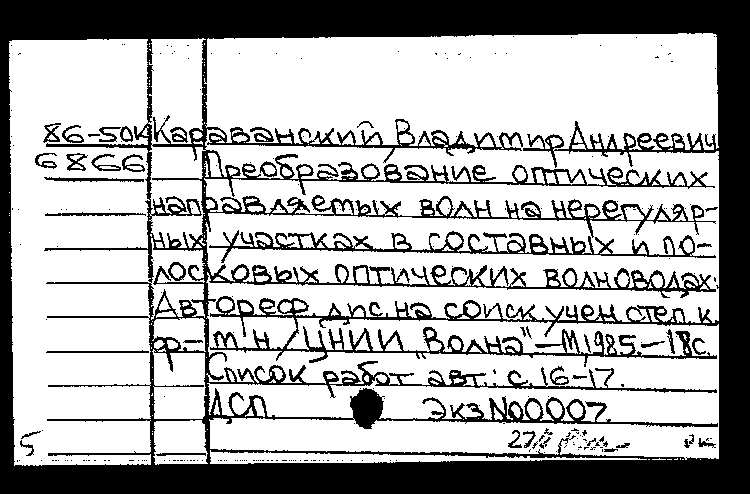 86-50к Караванский Владимир Андреевич
6866 Преобразование оптических
направляемых волн на нерегуляр-
ных участках в составных и по-
лосковых оптических волноводах:
Автореф. дис. на соиск. учен. степ. к.
ф.-м.н. / ЦНИИ "Волна". - М, 1985. - 18с.
Список работ авт.: с. 16-17.
ДСП. Экз N00007.
5 27